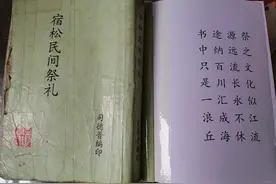 宿松民间祭礼
司德音编印
祭之文化似江流
源远流长永不休
途纳百川汇成海
书中只是一浪丘